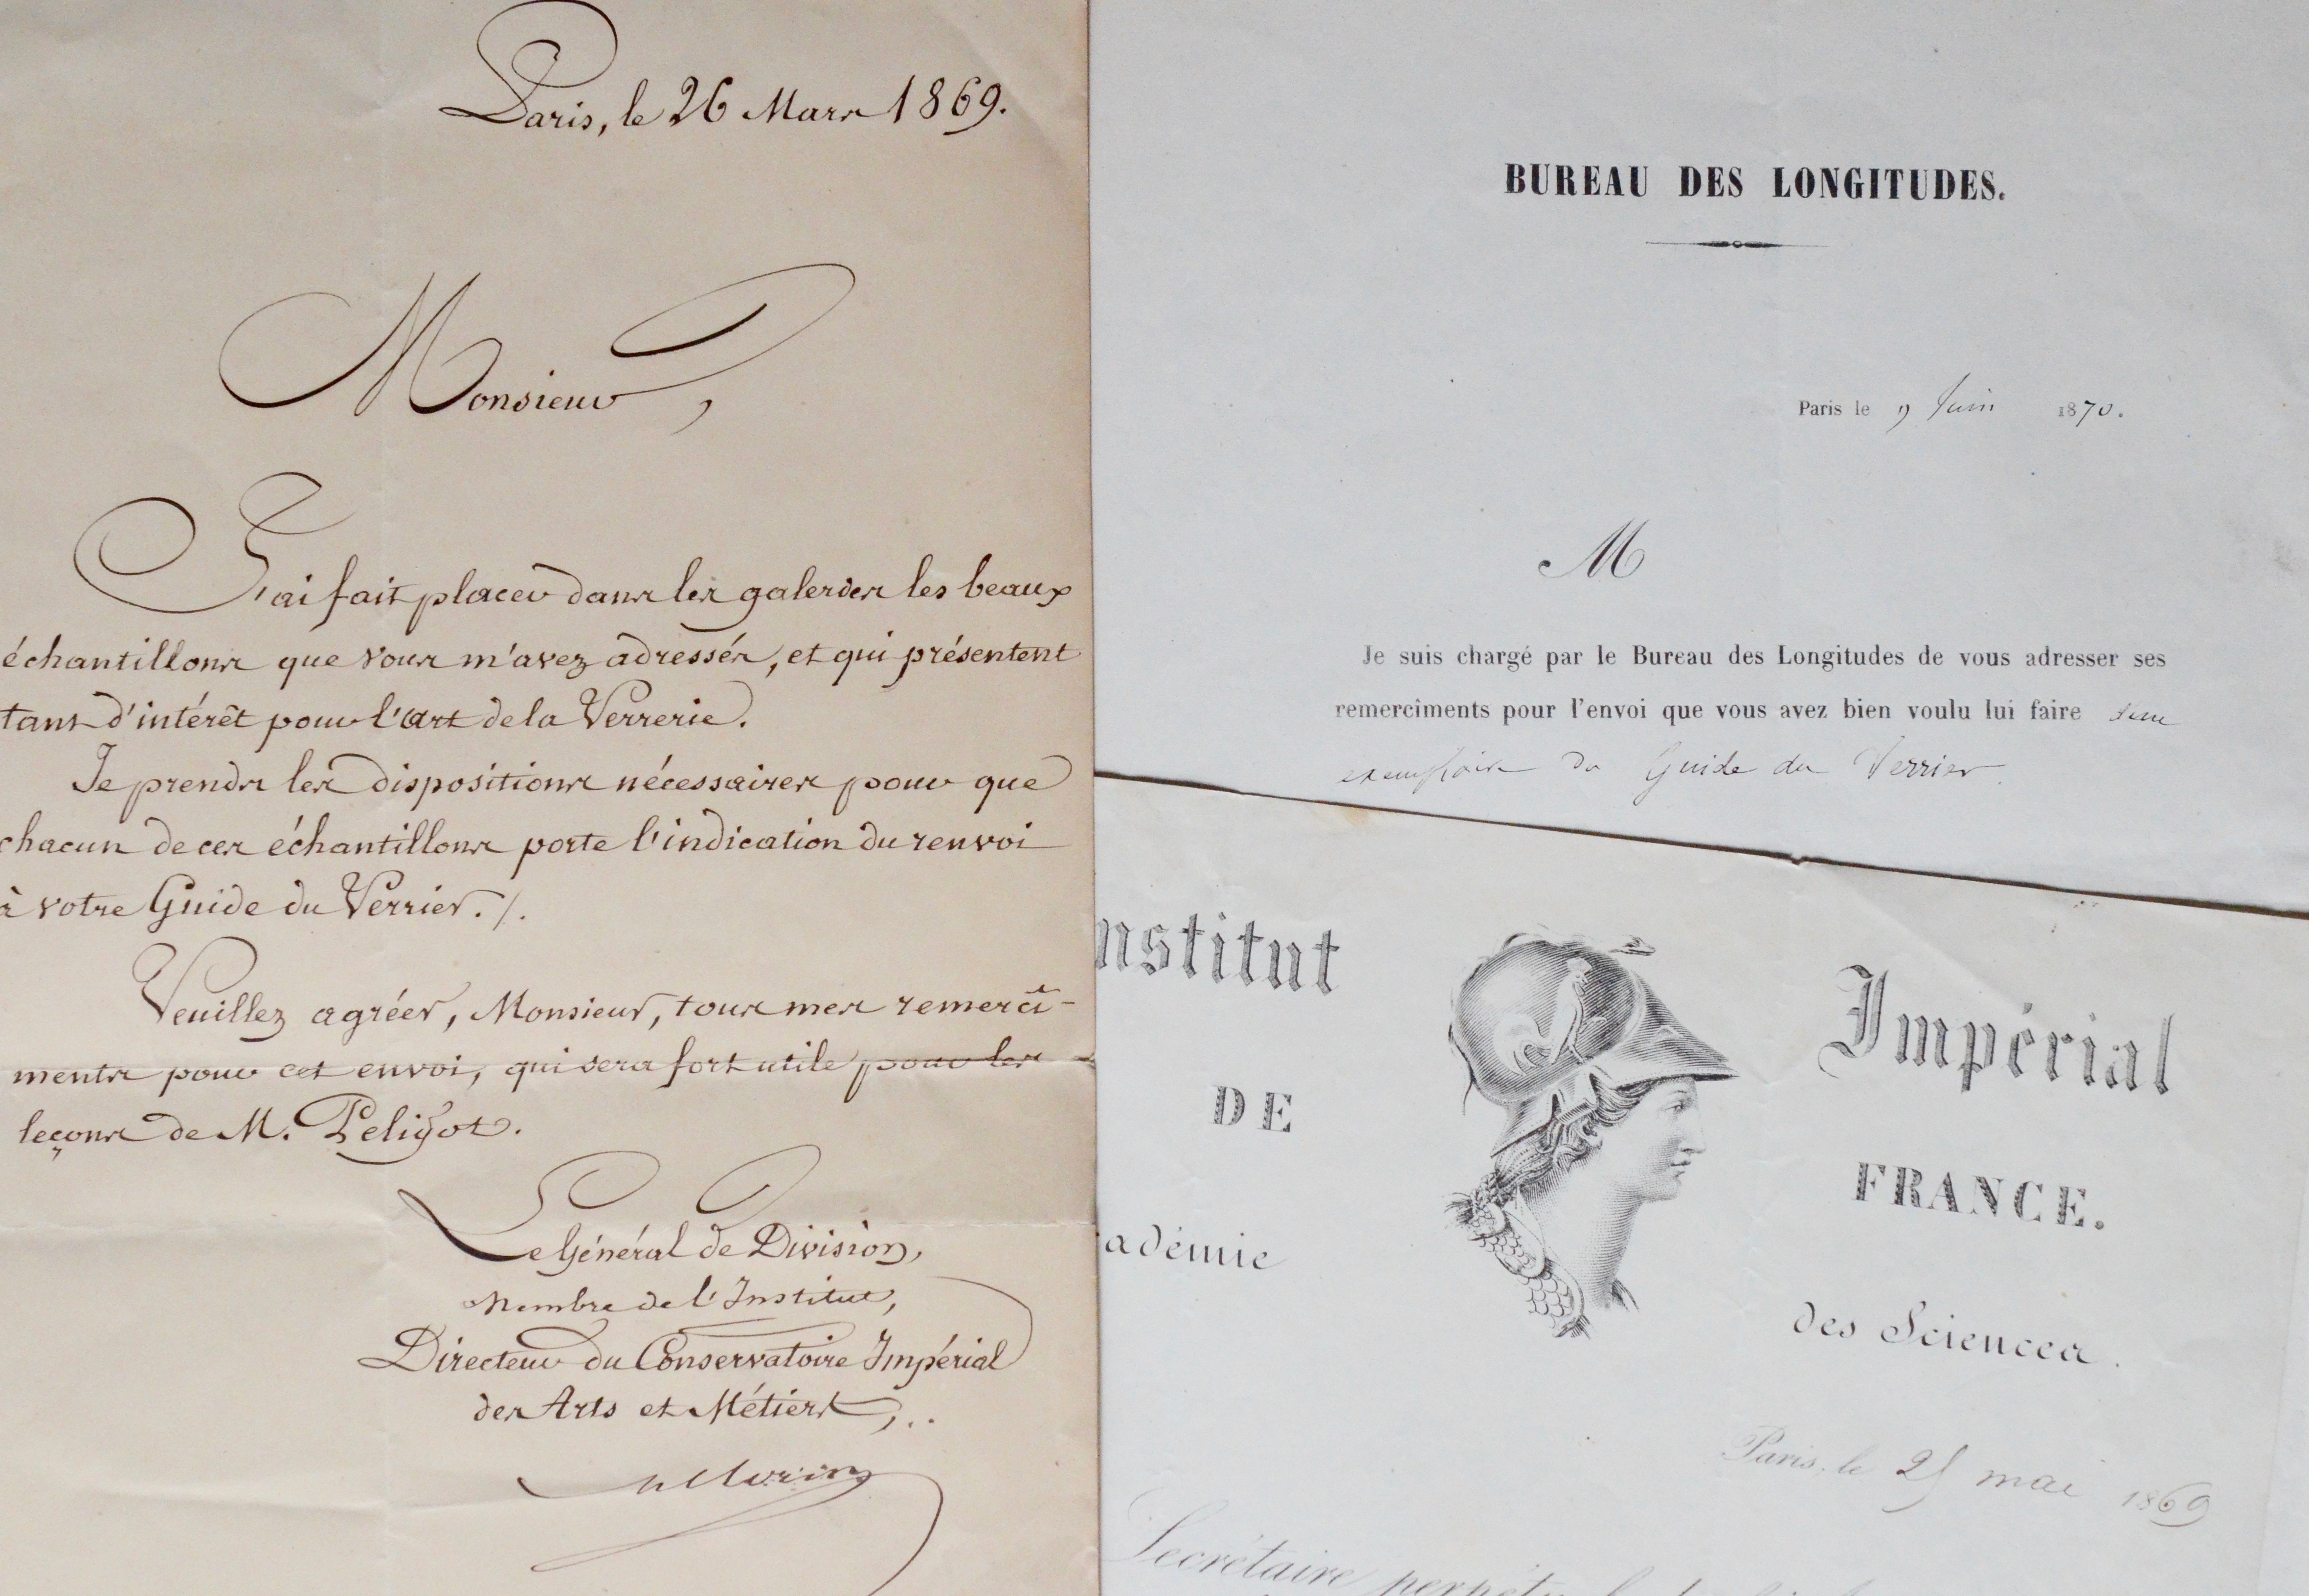 Paris, le 26 Mars 1869.
Monsieur,
J'ai fait placer dans les galeries les beaux
échantillons que vous m'avez adressés, et qui présentent
tant d'intérêt pour l'art de la Verrerie.
Je prends les dispositions nécessaires pour que
chacun de ces échantillons porte l'indication du renvoi
à votre Guide du Verrier./.
Veuillez agréer, Monsieur, tous mes remercî-
ments pour cet envoi, qui sera fort utile pour les
leçons de M. Peligot.
Le Général de Division,
Membre de l'Institut,
Directeur du Conservatoire Impérial
des Arts et Métiers,..
Morin
BUREAU DES LONGITUDES.
Paris le 9 Juin 1870.
M
Je suis chargé par le Bureau des Longitudes de vous adresser ses
remercîments pour l'envoi que vous avez bien voulu lui faire d'un
exemplaire du Guide du Verrier.
nstitut Impérial
DE FRANCE.
adémie des Sciences.
Paris, le 25 mai 1869
Secrétaire